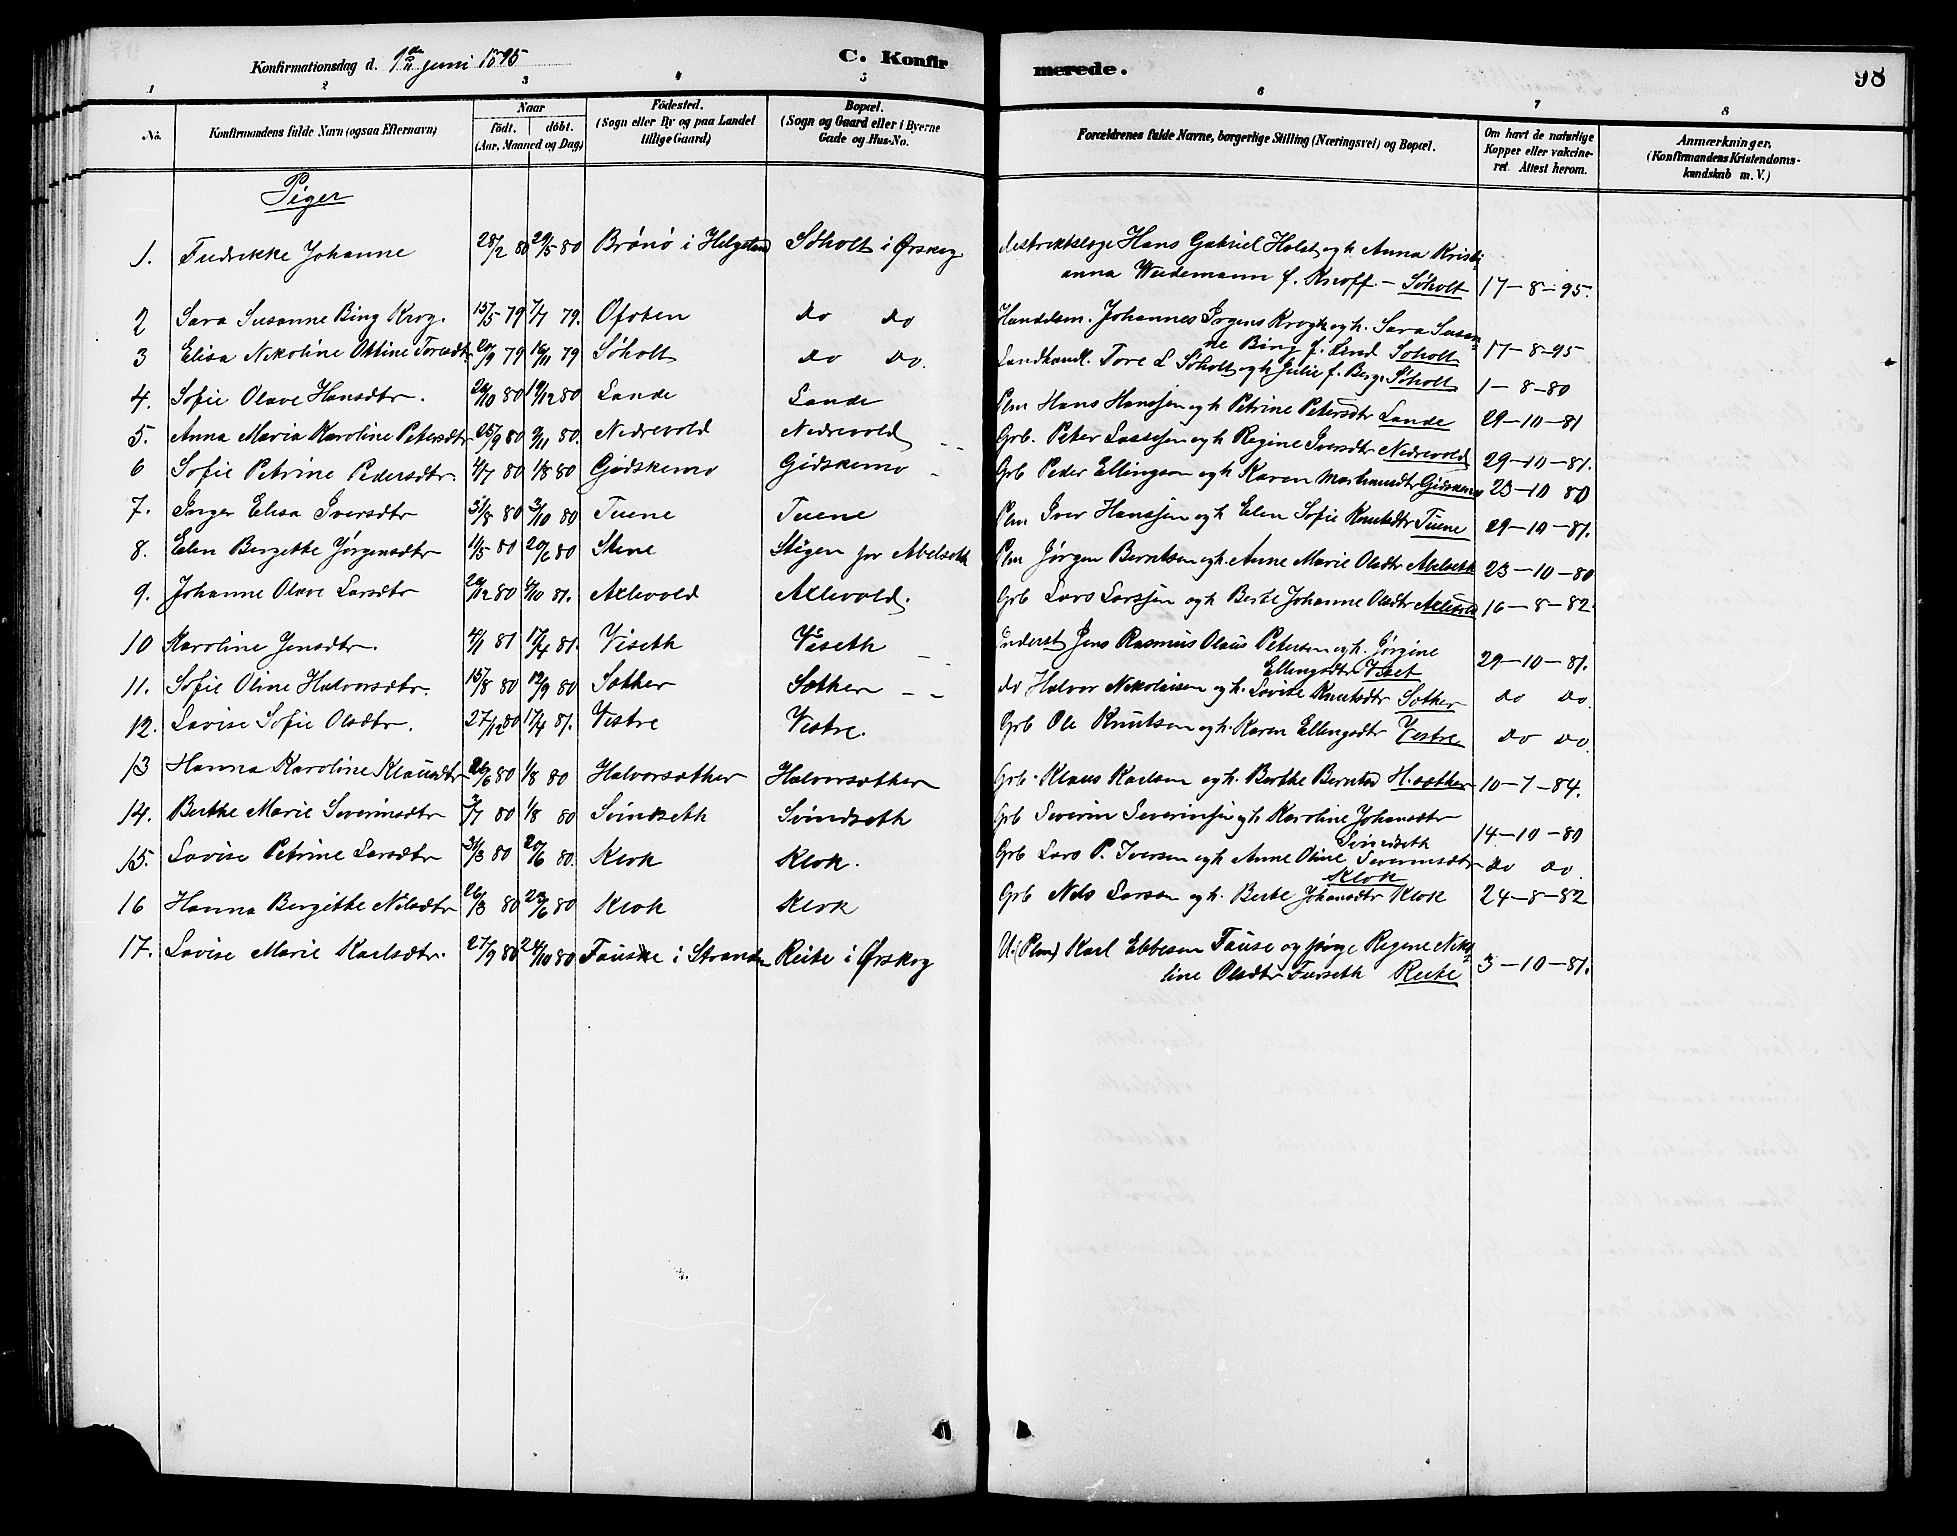 Konfirmationsdag d. 9de juni 1895
C. Konfirmerede.
98
1 2 3 4 5 6 7 8
No.
Konfirmandens fulde Navn (ogsaa Efternavn)
Naar
födt. döbt.
(Aar, Maaned og Dag)
Födested.
(Sogn eller By og paa Landet
tillige Gaard)
Bopæl.
(Sogn og Gaard eller i Byerne
Gade og Hus-No.
Forældrenes fulde Navne, borgerlige Stilling (Næringsvei) og Bopæl.
Om havt de naturlige
Kopper eller vakcine-
ret. Attest herom.
Anmærkninger,
(Konfirmandens Kristendoms-
kundskab m. V.)
Piger
1. Fredrikke Johanne 28/2 80 29/5 80 Brønø i Helgeland Søholt i Ørskog distriktslæge Hans Gabriel Holst og h. Anna Kristi
anna Wiedemann f. Knoff - Søholt 17-8-95.
2 Sara Susanne Bing Krog. 15/5 79 7/7 79. Ofoten do do Handelsm. Johannes Irgens Krogh og h. Sara Susan-
ne Bing f. Lind Søholt 17-8-95
3 Elisa Nikoline Ottine Toresdtr. 20/9 79 16/11 79 Søholt do do. Landhandl. Tore L Søholt og h Julie f. Berg. Søholt 1-8-80
4. Sofie Olave Hansdtr. 20/10 80 19/12 80 Lande Lande Plm Hans Hanssen og h Petrine Petersdtr Lande 29-10-81
5. Anna Maria Karoline Petersdtr 25/9 80 9/11 80. Nedrevold Nedrevold Grb. Peter Lassesen og h Regine Iversdtr Nedrevold 29-10-81.
6 Sofie Petrine Pedersdtr. 4/7 80 1/8 80 Gidskemo Gidskemo Grb Peder Ellingsen og h Karen Mathiasdtr Gidskemo 23-10 80
7. Inger Elisa Iversdtr 31/8 80 3/10 80 Tuene Tuene Plm Iver Hanssen og h Elen Sofie Knutsdtr Tuene 29-10-81.
8. Elen Bergitte Jørgensdtr 11/5 80 20/6 80 Stene Stigen pr Abelseth Plm Jørgen Berntsen og h. Anne Marie Olsdtr Abelseth 23-10-80
9. Johanne Olave Larsdtr 29/12 80 4/10 81. Axlevold Axlevold. Grb Lars Larssen og h. Berte Johanne Olsdtr Axlevold 16-8-82.
10 Karoline Jensdtr. 4/1 81 17/4 81. Viseth Viseth Inderst Jens Rasmus Olaus Petersen og h. Jørgine
Ellingsdtr Viset 29-10-81.
11. Sofie Oline Halvorsdtr. 15/8 80 12/9 80 Sother Sother do Halvor Nikolaisen og h. Lovise Knutsdtr Sother do do.
12. Lovise Sofie Olsdtr. 27/12 80 17/4 81. Vestre Vestre. Grb Ole Knutsen og h. Karen Ellingsdtr Vestre do do.
13 Hanna Karoline Klausdtr 26/6 80 1/8 80 Halvorsæther Halvorsæther Grb. Klaus Karlsen og h. Berthe Berntsd H.sæther 10-7-84.
14. Berthe Marie Severinsdtr 3/7 80 1/8 80 Svindseth Svindseth Grb Severin Severinsen og h Karoline Johansdtr
Svindseth 14-10-80
15. Lovise Petrine Larsdtr 31/3 80 20/6 80. Klok Klok. Grb Lars P. Iversen og h Anne Oline Severinsdtr
Klok do do.
16 Hanna Bergitte Nilsdtr 26/3 80 20/6 80 Klok Klok Grb Nils Larsen og h. Berte Johansdtr Klok 24-8-82
17. Lovise Marie Karlsdtr. 27/9 80 24/10 80 Fauske i Stranden Reite i Ørskog U. (Plm) Karl Ebbesen Fause og pige Regine Niko
line Olsdtr Furseth Reite 3-10-81.